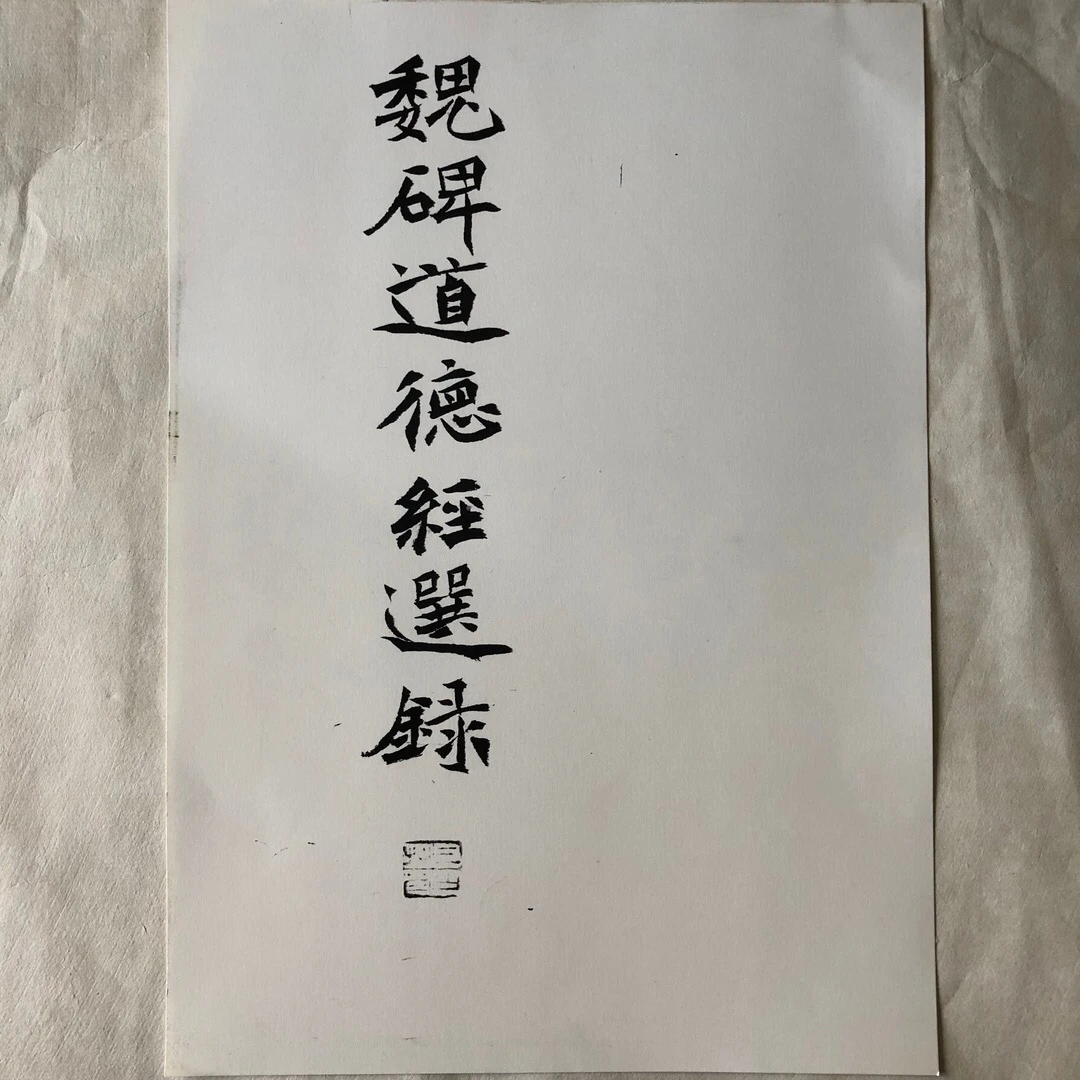 魏碑道德經選録